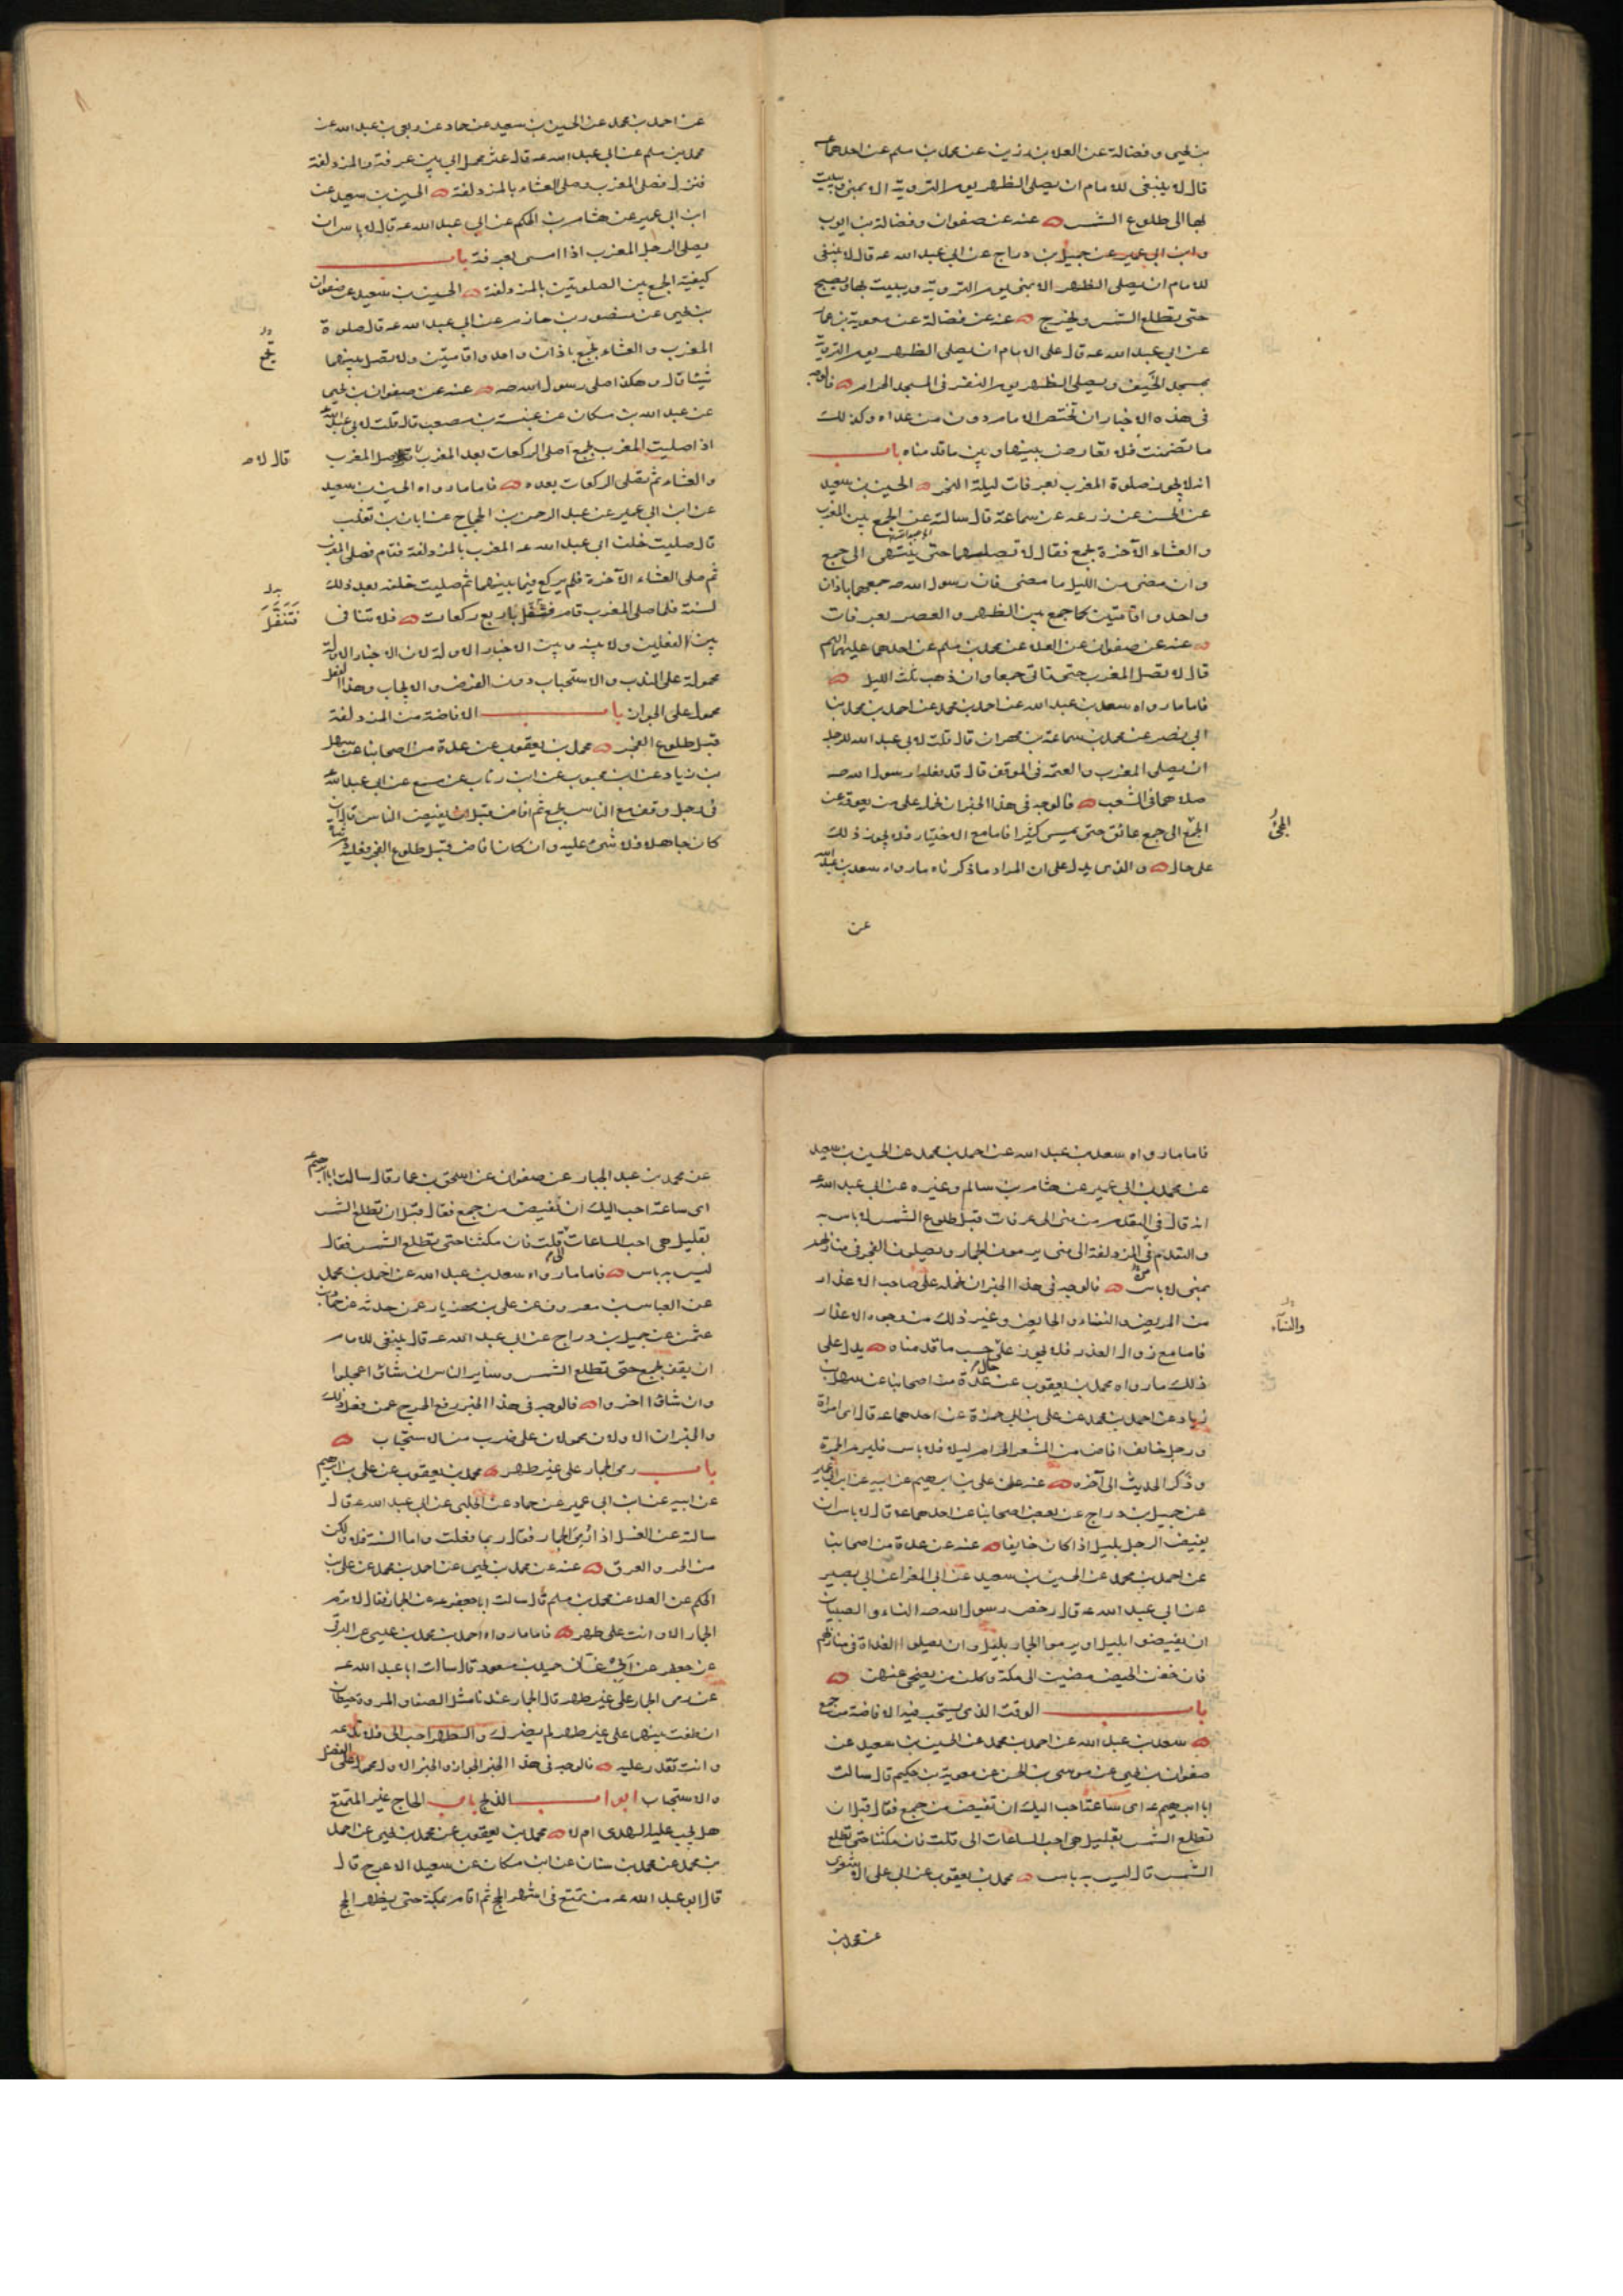 بن يحيى و فضالة عن العلا بن رزين عن محمد بن مسلم عن احدهما ع
قال لا ينبغى للامام ان يصلى الظهر يوم التروية الا بمنى و يبيت
بها الى طلوع الشمس عنه عن صفوان و فضالة بن ايوب
و ابن ابى عمير عن جميل بن دراج عن ابى عبد الله عه قال لا ينبغى
للامام ان يصلى الظهر الا بمنى يوم التروية و يبيت بها و يصبح
حتى تطلع الشمس و يخرج عنه عن فضالة عن معوية بن عمار
عن ابى عبد الله عه قال على الامام ان يصلى الظهر يوم التروية
بمسجد الخيف و يصلى الظهر يوم النفر فى المسجد الحرام فالوجه
فى هذه الاخبار ان تختص الامام دون من عداه و كذلك
ما تضمنت فلا تعارض بينها و بين ما قدمناه باب
انه لا يجوز صلوة المغرب بعرفات ليلة النحر الحسين بن سعيد
عن الحسن عن زرعه عن سماعة قال سالته عن الجمع بين المغرب
و العشاء الآخرة بجمع فقال لا تصليهما حتى ينتهى الى جمع
و ان مضى من الليل ما مضى فان رسول الله صه جمعهما باذان
واحد و اقامتين كما جمع بين الظهر و العصر بعرفات
عنه عن صفوان عن العلا عن محمد بن مسلم عن احدهما عليهما السلم
قال لا تصل المغرب حتى تاتى جمعا و ان ذهب ثلث الليل
فاما ما رواه سعد بن عبد الله عن احمد بن محمد عن احمد بن محمد بن
ابى نصر عن محمد بن سماعة بن مهران قال قلت لابى عبد الله للرجل
ان يصلى المغرب و العتمه فى الموقف قال قد فعله رسول الله صه
صلاهما فى الشعب فالوجه فى هذا الخبر ان نحمله على من يعوقه عن
المجئ الى جمع عائق حتى يمسى كثيرا فاما مع الاختيار فلا يجوز ذلك
على حال و الذى يدل على ان المراد ما ذكرناه ما رواه سعد بن عبد الله
عن
المجئ
عن احمد بن محمد عن الحسين بن سعيد عن حماد عن ربعى بن عبد الله عن
محمد بن مسلم عن ابى عبد الله عه قال عثر محمل ابى بين عرفة و المزدلفة
فنزل فصلى المغرب و صلى العشاء بالمزدلفة الحسين بن سعيد عن
ابن ابى عمير عن هشام بن الحكم عن ابى عبد الله عه قال لا باس ان
يصلى الرجل المغرب اذا امسى بعرفة باب
كيفية الجمع بين الصلوتين بالمزدلفة الحسين بن سعيد عن صفوان
بن يحيى عن منصور بن حازم عن ابى عبد الله عه قال صلوة
المغرب و العشاء بجمع باذان واحد و اقامتين و لا تصل بينهما
شيئا قال و هكذا صلى رسول الله صه عنه عن صفوان بن يحيى
عن عبد الله بن مسكان عن عنبسة بن مصعب قال قلت لابى عبد الله
اذا صليت المغرب بجمع اصلى الركعات بعد المغرب صل المغرب
و العشاء ثم تصلى الركعات بعده فاما ما رواه الحسين بن سعيد
عن ابن ابى عمير عن عبد الرحمن بن الحجاج عن ابان بن تغلب
قال صليت خلف ابى عبد الله عه المغرب بالمزدلفة فقام فصلى المغرب
ثم صلى العشاء الآخرة فلم يركع فيما بينهما ثم صليت خلفه بعد ذلك
لسنة فلما صلى المغرب قام فتنفل باربع ركعات فلا تنافى
بين الفعلين و لا بينه و بين الاخبار الاولة لان الاخبار الاولة
محمولة على الندب و الاستحباب دون الفرض و الايجاب و هذا الفعل
محمول على الجواز باب الافاضة من المزدلفة
قبل طلوع الفجر محمد بن يعقوب عن عدة من اصحابنا عن سهل
بن زياد عن ابن محبوب عن ابن رئاب عن مسمع عن ابى عبد الله
فى رجل وقف مع الناس بجمع ثم افاض قبل ان يفيض الناس قال ان
كان جاهلا فلا شئ عليه و ان كان افاض قبل طلوع الفجر فعليه دم شاة
بجمع
قال لا
فتنفل
فاما ما رواه سعد بن عبد الله عن احمد بن محمد عن الحسين بن سعيد
عن محمد بن ابى عمير عن هشام بن سالم و غيره عن ابى عبد الله عه
انه قال فى التقدم من منى الى عرفات قبل طلوع الشمس لا باس به
و التقدم فى المزدلفة الى منى يرمون الجمار و يصلون الفجر فى منازلهم
بمنى لا باس فالوجه فى هذا الخبر ان نحمله على صاحب الاعذار
من المريض و النساء و الخايف و غير ذلك من وجوه الاعذار
فاما مع زوال العذر فلا يجوز على حسب ما قدمناه يدل على
ذلك ما رواه محمد بن يعقوب عن عدة من اصحابنا عن سهل بن
زياد عن احمد بن محمد عن على بن ابى حمزة عن احدهما عه قال اى امراة
و رجل خائف افاض من المشعر الحرام ليلا فلا باس فليرم الجمرة
و ذكر الحديث الى آخره عنه عن على بن ابرهيم عن ابيه عن ابن ابى عمير
عن جميل بن دراج عن بعض اصحابنا عن احدهما عه قال لا باس ان
يفيض الرجل بليل اذا كان خايفا عنه عن عدة من اصحابنا
عن احمد بن محمد عن الحسين بن سعيد عن ابى المغرا عن ابى بصير
عن ابى عبد الله عه قال رخص رسول الله صه للنساء و الصبيان
ان يفيضوا بليل و يرموا الجمار بليل و ان يصلوا الغداة فى منازلهم
فان خفن الحيض مضين الى مكة و وكلن من يضحى عنهن
باب الوقت الذى يستحب فيه الافاضة من جمع
سعد بن عبد الله عن احمد بن محمد عن الحسين بن سعيد عن
صفوان بن يحيى عن موسى بن الحسن عن معوية بن حكيم قال سالت
ابا ابرهيم عه اى ساعة احب اليك ان نفيض من جمع فقال قبل ان
تطلع الشمس بقليل هى احب الساعات الى قلت فان مكثنا حتى تطلع
الشمس قال ليس به باس محمد بن يعقوب عن ابى على الاشعرى
عن محمد بن
والنساء
عن محمد بن عبد الجبار عن صفوان عن اسحق بن عمار قال سالت ابا ابرهيم
اى ساعة احب اليك ان نفيض من جمع فقال قبل ان تطلع الشمس
بقليل هى احب الساعات الى قلت فان مكثنا حتى تطلع الشمس فقال
ليس به باس فاما ما رواه سعد بن عبد الله عن احمد بن محمد
عن العباس بن معروف عن على بن مهزيار عمن حدثه عن حماد بن
عثمن عن جميل بن دراج عن ابى عبد الله عه قال ينبغى للامام
ان يقف بجمع حتى تطلع الشمس و ساير الناس ان شاؤا عجلوا
و ان شاؤا اخروا فالوجه فى هذا الخبر رفع الحرج عمن فعل ذلك
و الخبران الاولان محمولان على ضرب من الاستحباب
باب رمى الجمار على غير طهر محمد بن يعقوب عن على بن ابرهيم
عن ابيه عن ابن ابى عمير عن حماد عن الحلبى عن ابى عبد الله عه قال
سالته عن الغسل اذا رمى الجمار فقال ربما فعلت و اما السنة فلا و لكن
من الحر و العرق عنه عن محمد بن يحيى عن احمد بن محمد عن على بن
الحكم عن العلا عن محمد بن مسلم قال سالت ابا جعفر عه عن الجمار فقال لا ترم
الجمار الا و انت على طهر فاما ما رواه احمد بن محمد بن عيسى عن البرقى
عن جعفر عن ابى غسان حميد بن مسعود قال سالت ابا عبد الله عه
عن رمى الجمار على غير طهر قال الجمار عندنا مثل الصفا و المروة حيطان
ان طفت بينهما على غير طهر لم يضرك و الطهر احب الى فلا تدعه
و انت تقدر عليه فالوجه فى هذا الخبر الجواز و الخبر الاول محمول على الفضل
و الاستحباب ابواب الذبح باب الحاج غير المتمتع
هل يجب عليه الهدى ام لا محمد بن يعقوب عن محمد بن يحيى عن احمد
بن محمد عن محمد بن سنان عن ابن مسكان عن سعيد الاعرج قال
قال ابو عبد الله عه من تمتع فى اشهر الحج ثم اقام بمكة حتى يحضر الحج